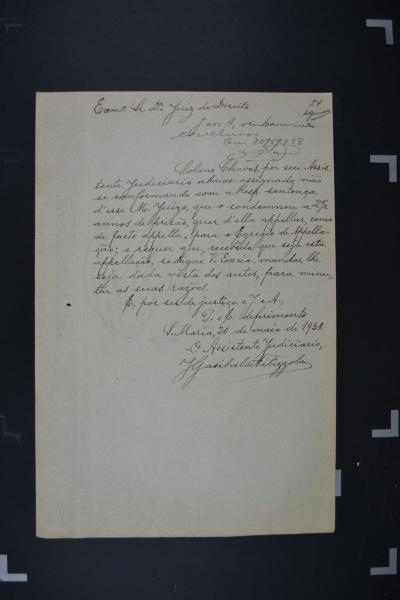 54
Exmo. Sr. Dr. Juiz de Direito
J. aos A., venham-me
conclusos.
Em
Solano Chaves, por seu Assis-
tente Judiciario abaixo assignado, não
se conformando com a Resp. sentença
d'esse M. Juizo, que o condemnou a 2½
annos de prisão, quer d'ella appellar, como
de facto appella, para o Egregio de Appella-
ção; e requer que, recebida que seja esta
appellação, se Digne V. Excia, mandar lhe
seja dada vista dos autos, para minu-
tar as suas razões.
E, por ser de justiça e J. e A.,
P. e E. deferimento
S. Maria, 20 de maio de 1938
O Assistente Judiciario,
J Garibaldi Filizzola